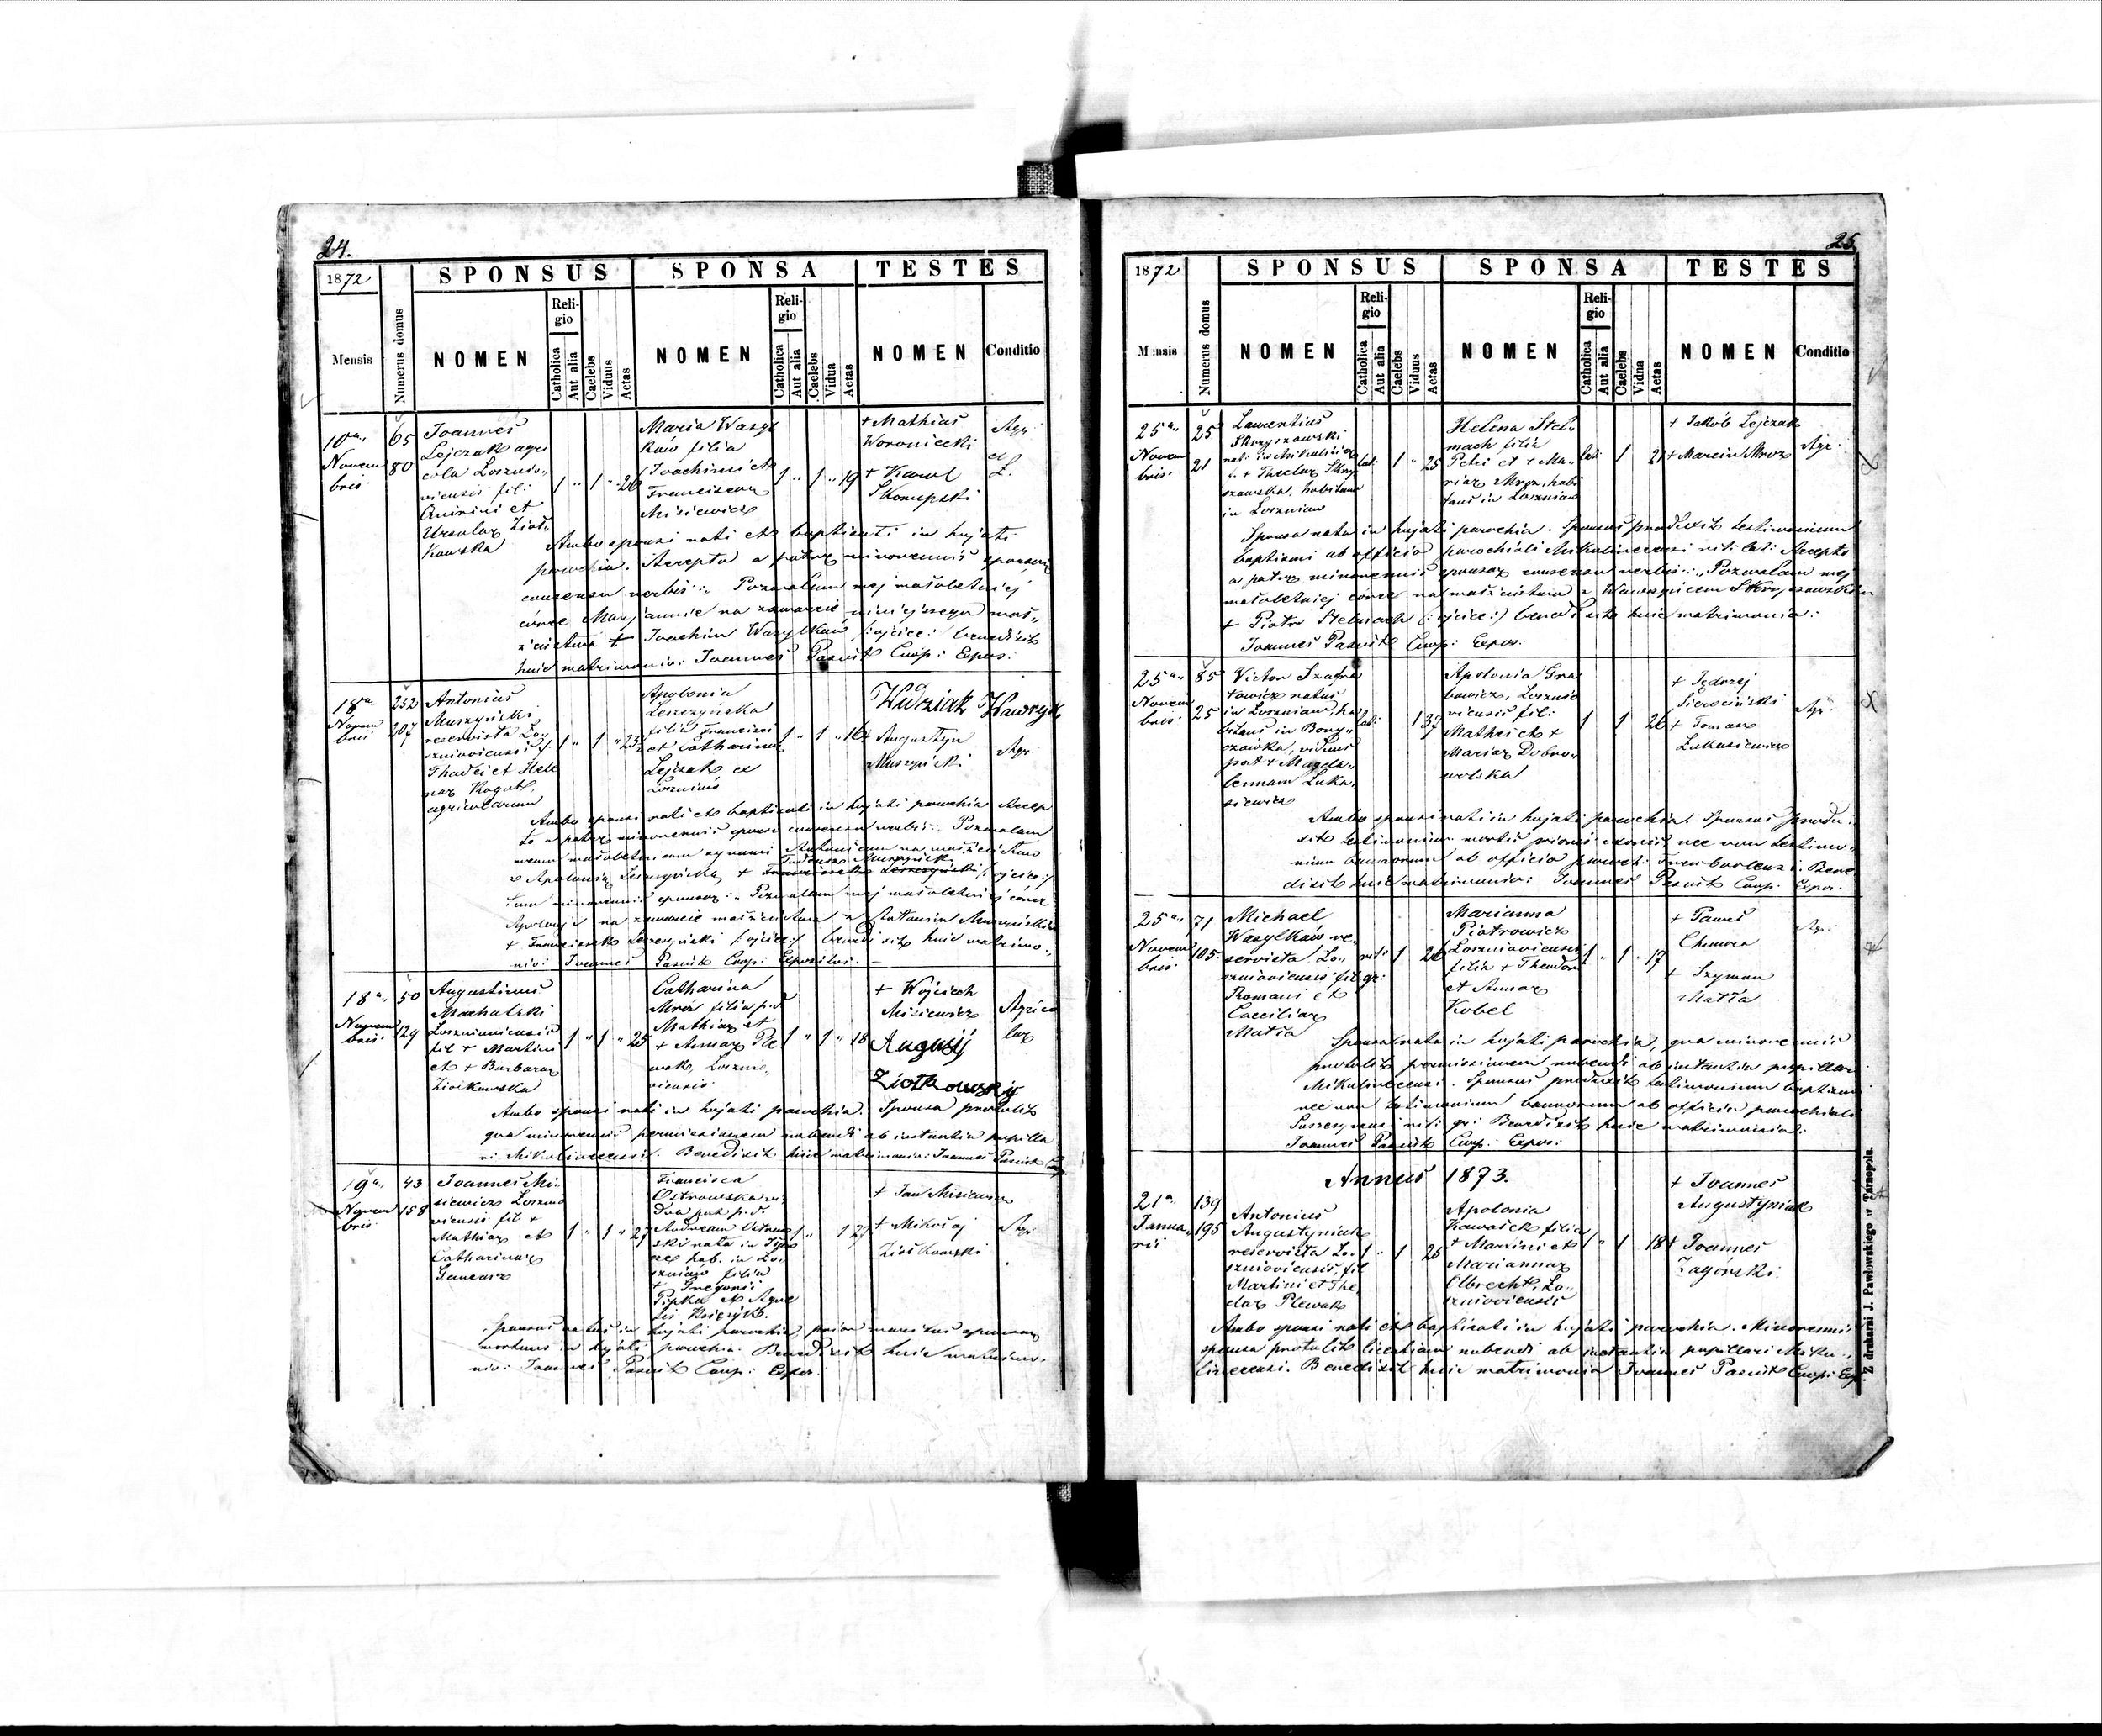 24.
1872
SPONSUS
SPONSA
TESTES
Mensis
Numerus domus
NOMEN
Religio
Catholica
Aut alia
Caelebs
Viduus
Aetas
NOMEN
Religio
Catholica
Aut alia
Caelebs
Vidua
Aetas
NOMEN
Conditio
10a
Novem
bris
65
80
Joannes
Lejczak agri
cola Loznio
viensis fil:
Quirini et
Ursulae Ziół
kowska
1 " 1 " 26
Maria Wasyl
ków filia
Joachimi et
Franciscae
Misiewicz
1 " 1 " 19
+ Mathias
Woroniecki
+ Karol
Skorupski
Agr:
et
L.
Ambo sponsi nati et baptisati in hujati
parochia. Accepto a patre minorennis sponsae
consensu verbis: "Pozwalam mej małoletniej
córce Maryannie na zawarcie niniejszego małż
eństwa + Joachim Wasylków /: ojciec :/ benedixit
huic matrimonio: Joannes Paszuk Coop: Expos:
18a
Novem
bris
252
207
Antonius
Muszyński
reservista Lo
zniowiensis f.
Thadei et Hele
nae Kogut,
agricolarum
1 " 1 " 23
Apolonia
Leszczyńska
filia Francisci
et Catharinae
Lejczak ex
Łoźniów
1 " 1 " 16
Widziak Hawryk
+ Augustyn
Muszyński
Agr:
Ambo sponsi nati et baptisati in hujati parochia Accep
to a patre minorennis sponsi consensu verbis: Pozwalam
memu małoletniemu synowi Antoniemu na małżeństwo
z Apolonią Leszczyńską, + Tadeusz Muszyński /: ojciec :/
tum minorennis sponsae: "Pozwalam mej małoletniej córce
Apolonji na zawarcie małżeństwa z Antonim Muszyńskim
+ Franciszek Leszczyński /: ojciec :/ benedixit huic matrimo
nio: Joannes Paszuk Coop: Expositus.
18a
Novem
bris
50
129
Augustinus
Machalski
Lozniowiensis
fil + Martini
et + Barbarae
Ziołkowska
1 " 1 " 25
Catharina
Mróz filia p.d
Mathiae et
+ Annae Ple
wak, Loznio
viensis
1 " 1 " 18
+ Wojciech
Misiewicz
Augusty
Ziołkowsky
Agrico
lae
Ambo sponsi nati in hujati parochia. Sponsa protulit
qua minorennis permissionem nubendi ab instantia pupilla
ri Mikulincensi. Benedixit huic matrimonio: Joannes Paszuk Coop
19a
Novem
bris
43
158
Joannes Mi
siewicz Loznio
viensis fil +
Mathiae et
Catharinae
1 " 1 " 27
Francisca
Ostrowska vi
dua post p.d.
Andream
ski nata in
hab. in Lo
zniow filia
+ Gregorii
Pipka et Agne
tis Księżyk.
1 " 1 27
+ Jan Misiewicz
+ Mikołaj
Ziołkowski
Agr:
Sponsus natus in hujati parochia, prior maritus sponsae
mortuus in hujati parochia. Benedixit huic matrimo
nio: Joannes Paszuk Coop: Expos:
25.
1872
SPONSUS
SPONSA
TESTES
Mensis
Numerus domus
NOMEN
Religio
Catholica
Aut alia
Caelebs
Viduus
Aetas
NOMEN
Religio
Catholica
Aut alia
Caelebs
Vidua
Aetas
NOMEN
Conditio
25a
Novem
bris
25
21
Laurentius
Skrzyszowski
nat: in Mikulińce
f. + Theclae Skrzy
szowska, habitans
in Lozniow
lat: 1 " 25
Helena Stel
mach filia
Petri et + Ma
riae Mroz, habi
tans in Lozniow
lat: 1 21
+ Jakób Lejczak
+ Marcin Mroz
Agr:
Sponsa nata in hujati parochia. Sponsus produxit testimonium
baptismi ab officio parochiali Mikulincensi rit: lat: Accepto
a patre minorennis sponsae consensu verbis: "Pozwalam mej
małoletniej córce na małżeństwo z Wawrzyńcem Skrzyszowskim
+ Piotr Stelmach /: ojciec :/ benedixit huic matrimonio:
Joannes Paszuk Coop: Expos:
25a
Novem
bris
85
25
Victor Szafra
nowicz natus
in Lozniow, ha
bitans in Bory
czówka, viduus
post + Magda
lenam Łuka
siewicz
lat: 1 37
Apolonia Gra
bowicz, Loznio
viensis fil:
Mathei et +
Mariae Dobro
wolska
1 1 26
+ Jędrzej
Sierociński
+ Tomasz
Łukasiewicz
Agr:
Ambo sponsi nati in hujati parochia. Sponsus produ
xit testimonium mortis prioris uxoris nec non testimo
nium bannorum ab officio paroch: Trembovlensi. Bene
dixit huic matrimonio: Joannes Paszuk Coop: Expos:
25a
Novem
bris
71
105
Michael
Wasylków re
servista Lo
zniowiensis fil
Romani et
Caeciliae
Matła
rit: gr: 1 26
Marianna
Piotrowicz
Lozniowiensis
filia + Theodori
et Annae
Kobel
1 " 1 " 17
+ Paweł
Chmura
+ Szymon
Matła
Agr:
Sponsa nata in hujati parochia, qua minorennis
protulit permissionem nubendi ab instantia pupillari
Mikulincensi. Sponsus produxit testimonium baptismi
nec non testimonium bannorum ab officio parochiali
rit: gr: Benedixit huic matrimonio:
Joannes Paszuk Coop: Expos:
Annus 1873.
21a
Janua
rii
139
195
Antonius
Augustyniak
reservista Lo
zniowiensis, fil
Martini et The
clae Plewak
1 " 1 25
Apolonia
Kawałek filia
+ Martini et
Mariannae
Olbrecht, Lo
zniowiensis
1 " 1 18
+ Joannes
Augustyniak
+ Joannes
Zagórski
Ambo sponsi nati et baptisati in hujati parochia. Minorennis
sponsa protulit licentiam nubendi ab instantia pupillari Miku
lincensi. Benedixit huic matrimonio Joannes Paszuk Coop: Exp
Z drukarni J. Pawłowskiego w Tarnopolu.